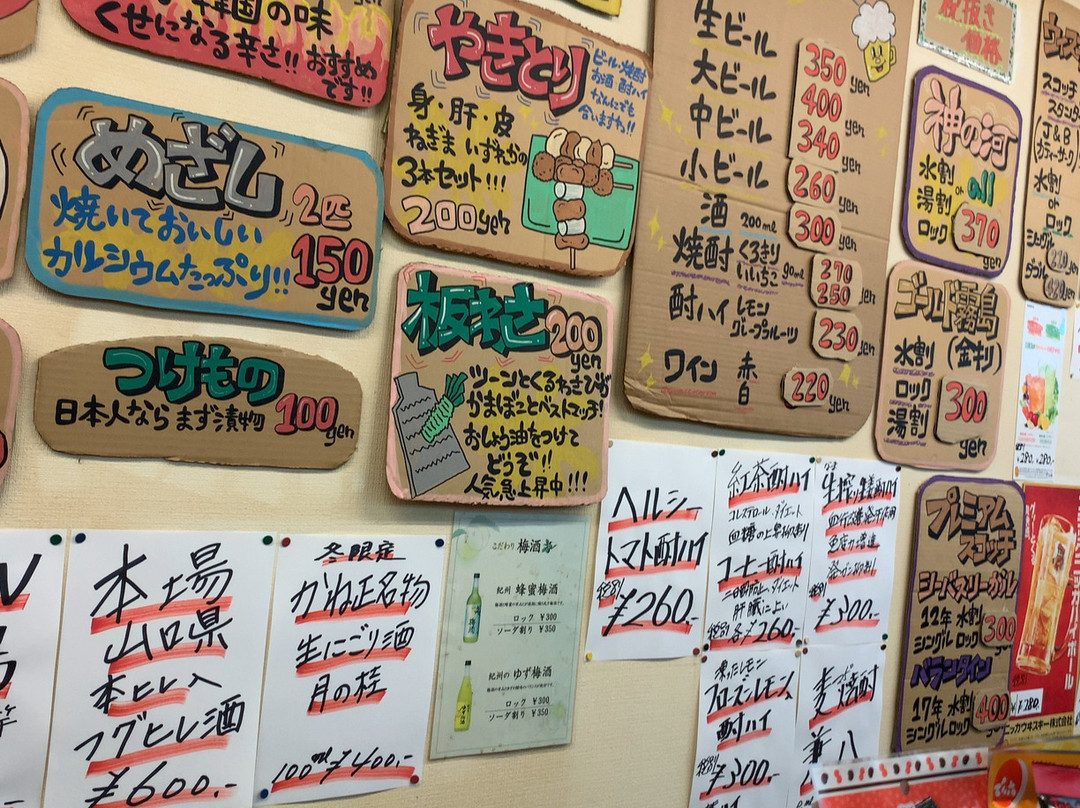 韓国の味
くせになる辛さ!! おすすめ
です!!
めざし
2匹
150
yen
焼いておいしい
カルシウムたっぷり!!
つけもの
日本人なら まず漬物
100
yen
やきとり
ビール・焼酎
お酒 酎ハイ
なんにでも
合いますヨ!!
身・肝・皮
ねぎま いずれかの
3本セット!!!
200yen
板わさ
200
yen
ツーンとくるわさびが
かまぼことベストマッチ!
おしょう油をつけて
どうぞ!!
人気急上昇中!!!
生ビール 350 yen
大ビール 400 yen
中ビール 340 yen
小ビール 260 yen
酒 200ml 300 yen
焼酎 くろきり 270
いいちこ 90ml 250 yen
酎ハイ レモン
グレープフルーツ 230 yen
ワイン 赤
白 220 yen
税抜き
価格
神の河
水割 or all
湯割
ロック 370
yen
ゴールド霧島
(金判)
水割
ロック
湯割 300
yen
スコッチ
J&B
水割
or
ロック
シングル
ダブル
プレミアム
スコッチ
シーバスリーガル
12年 水割
シングル ロック 300
バランタイン
17年 水割
シングル ロック 400
本場
山口県
本ヒレ入
フグヒレ酒
¥600.-
冬限定
かね正名物
生にごり酒
月の桂
100ml ¥400.-
こだわり 梅酒
紀州 蜂蜜梅酒
ロック ¥300
ソーダ割り ¥350
紀州の ゆず梅酒
ロック ¥300
ソーダ割り ¥350
ヘルシー
トマト酎ハイ
税別
¥260.-
紅茶酎ハイ
コレステロール、ダイエット
血糖の上昇抑制
コーヒー酎ハイ
肝臓に良い
税別 各¥260.-
生搾り生姜酎ハイ
¥300.-
凍ったレモン
フローズンレモン
酎ハイ
税別
¥300.-
麦焼酎
兼八
¥280.